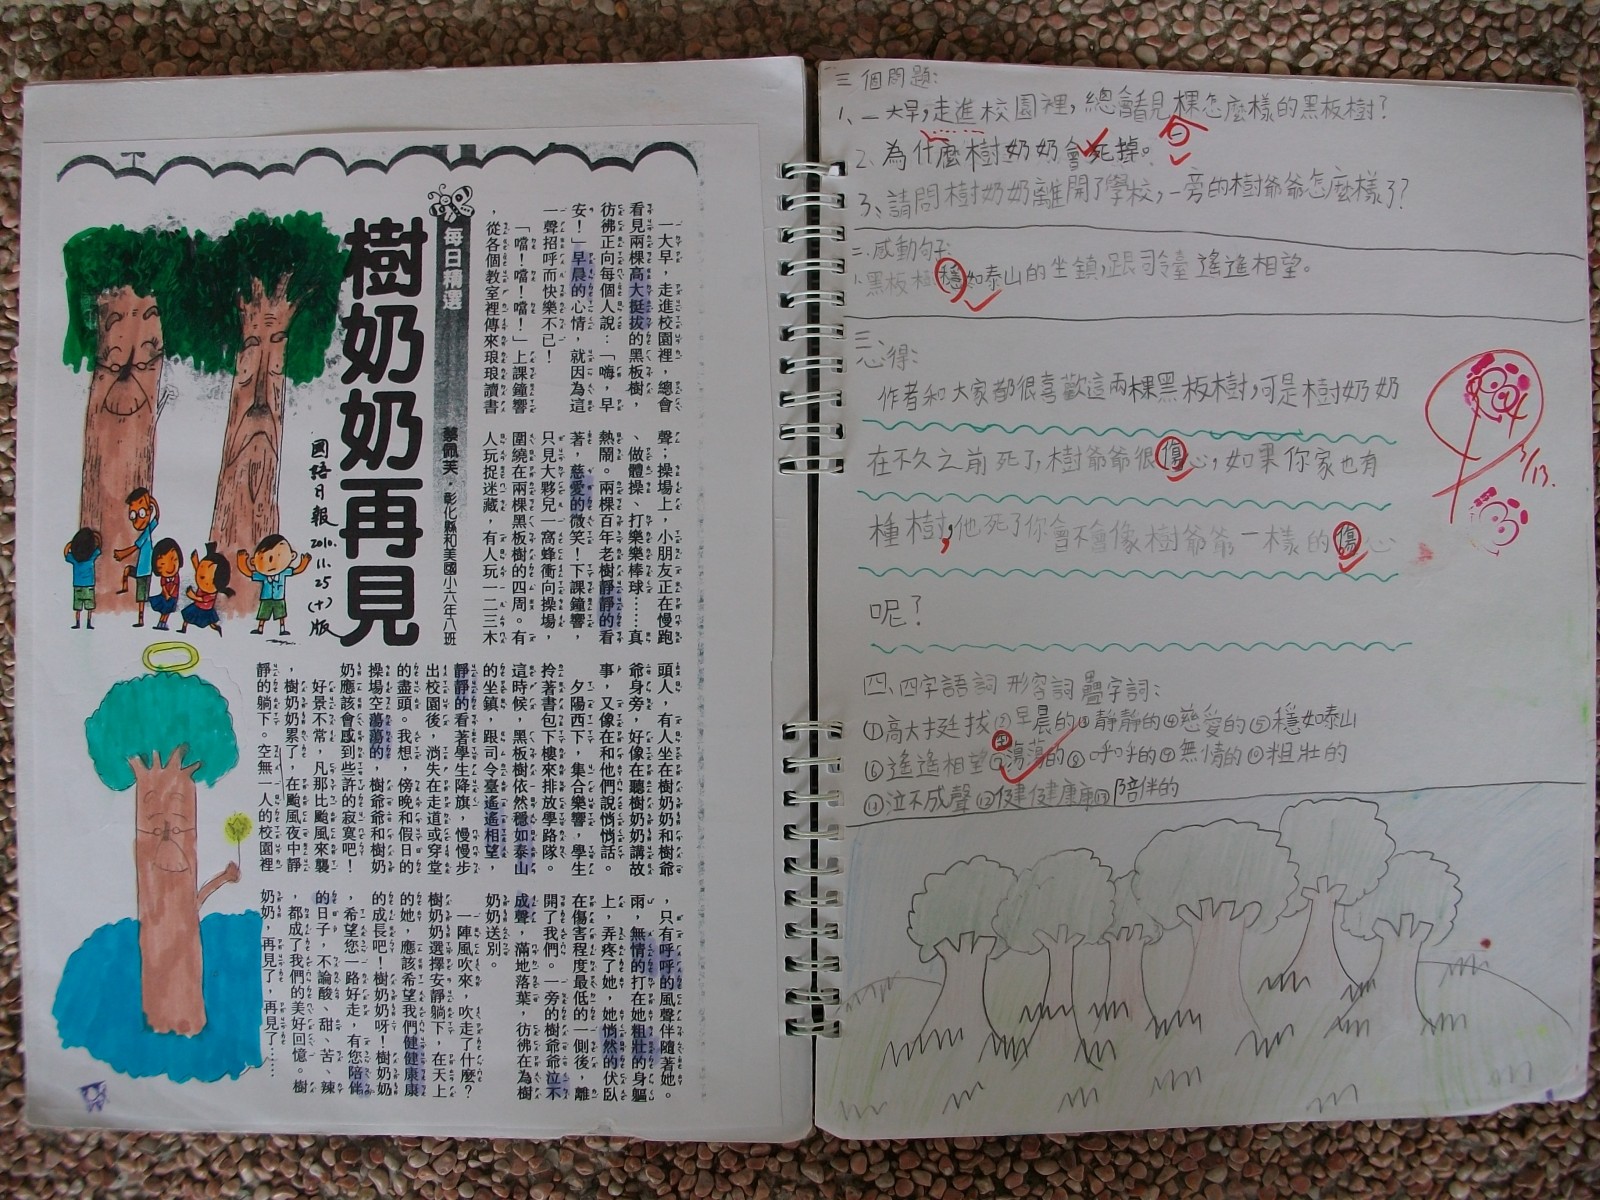 每日精選
樹奶奶再見
蔡佩芙．彰化縣和美國小六年八班
國語日報
2010.
11.25
(十)版
一大早，走進校園裡，總會
看見兩棵高大挺拔的黑板樹，
彷彿正向每個人說：「嗨，早
安！」早晨的心情，就因為這
一聲招呼而快樂不已！
「噹！噹！噹！」上課鐘響
，從各個教室裡傳來琅琅讀書
聲；操場上，小朋友正在慢跑
、做體操、打樂樂棒球……真
熱鬧。兩棵百年老樹靜靜的看
著，慈愛的微笑！下課鐘響，
只見大夥兒一窩蜂衝向操場，
圍繞在兩棵黑板樹的四周。有
人玩捉迷藏，有人玩一二三木
頭人，有人坐在樹奶奶和樹爺
爺身旁，好像在聽樹奶奶講故
事，又像在和他們說悄悄話。
夕陽西下，集合樂響，學生
拎著書包下樓來排放學路隊。
這時候，黑板樹依然穩如泰山
的坐鎮，跟司令臺遙遙相望，
靜靜的看著學生降旗，慢慢步
出校園後，消失在走道或穿堂
的盡頭。我想，傍晚和假日的
操場空蕩蕩的，樹爺爺和樹奶
奶應該會感到些許的寂寞吧！
好景不常，凡那比颱風來襲
，樹奶奶累了，在颱風夜中靜
靜的躺下。空無一人的校園裡
，只有呼呼的風聲伴隨著她。
雨，無情的打在她粗壯的身軀
上，弄疼了她，她悄然的伏臥
在傷害程度最低的一側後，離
開了我們。一旁的樹爺爺泣不
成聲，滿地落葉，彷彿在為樹
奶奶送別。
一陣風吹來，吹走了什麼？
樹奶奶選擇安靜躺下，在天上
的她，應該希望我們健健康康
的成長吧！樹奶奶呀！樹奶奶
，希望您一路好走，有您陪伴
的日子，不論酸、甜、苦、辣
，都成了我們的美好回憶。樹
奶奶，再見了，再見了……
三個問題：
1、一大早，走進校園裡，總會看見棵怎麼樣的黑板樹？
2、為什麼樹奶奶會死掉。
3、請問樹奶奶離開了學校，一旁的樹爺爺怎麼樣了？
二、感動句子：
1、黑板樹穩如泰山的坐鎮，跟司令臺遙遙相望。
三、
心得：
作者和大家都很喜歡這兩棵黑板樹，可是樹奶奶
在不久之前死了，樹爺爺很傷心，如果你家也有
種樹，他死了你會不會像樹爺爺一樣的傷心
呢？
3/13.
四、四字語詞 形容詞 疊字詞：
①高大挺拔②早晨的③靜靜的④慈愛的⑤穩如泰山
⑥遙遙相望⑦蕩蕩的⑧呼呼的⑨無情的⑩粗壯的
⑪泣不成聲⑫健健康康⑬陪伴的